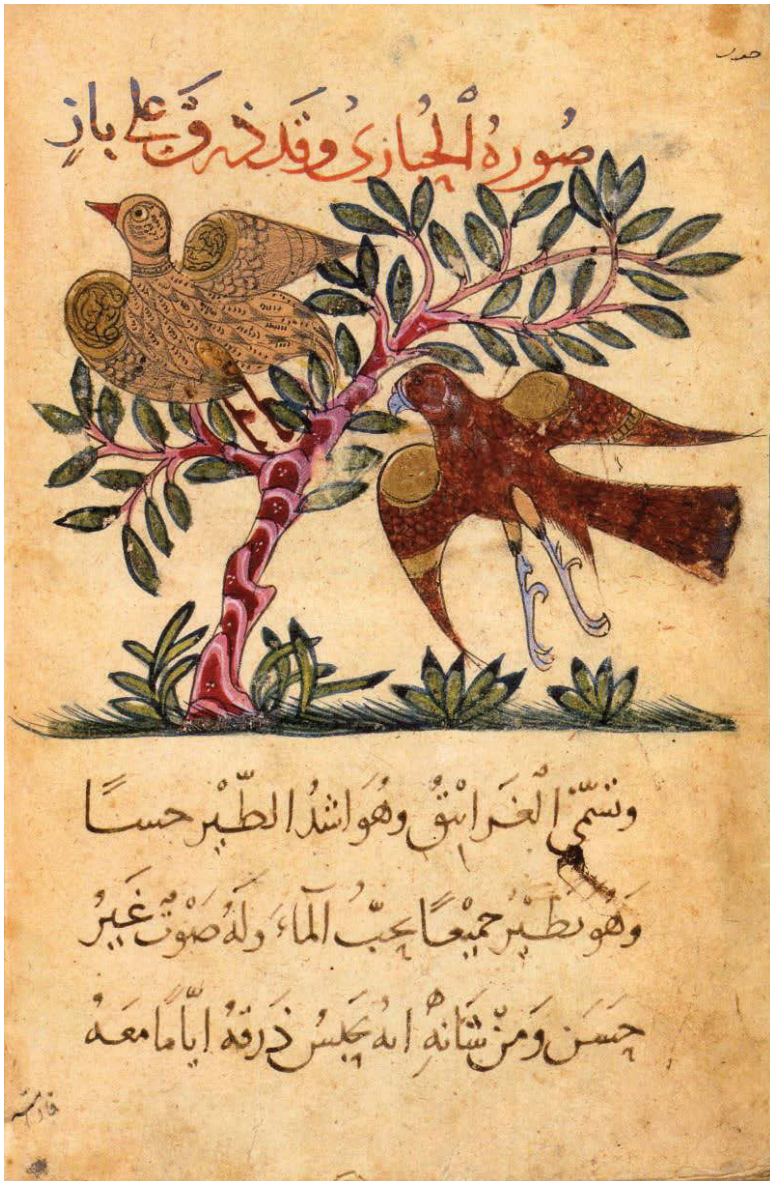 صُورهُ الحُبَارَى وقَد ذرَق على بازٍ
وتسَمّى الْغَرَانِيْقُ وهُوَ اشدُ الطَّيْر حسًا
وَهُو يَطيْرُ جَمِيْعًا يحِبّ المآءَ وَلَهُ صَوْتٌ غَيْرُ
حَسَن وَمِنْ شَانِهِ انهُ يَحبِسُ ذَرقهُ ايّامًا معَهُ